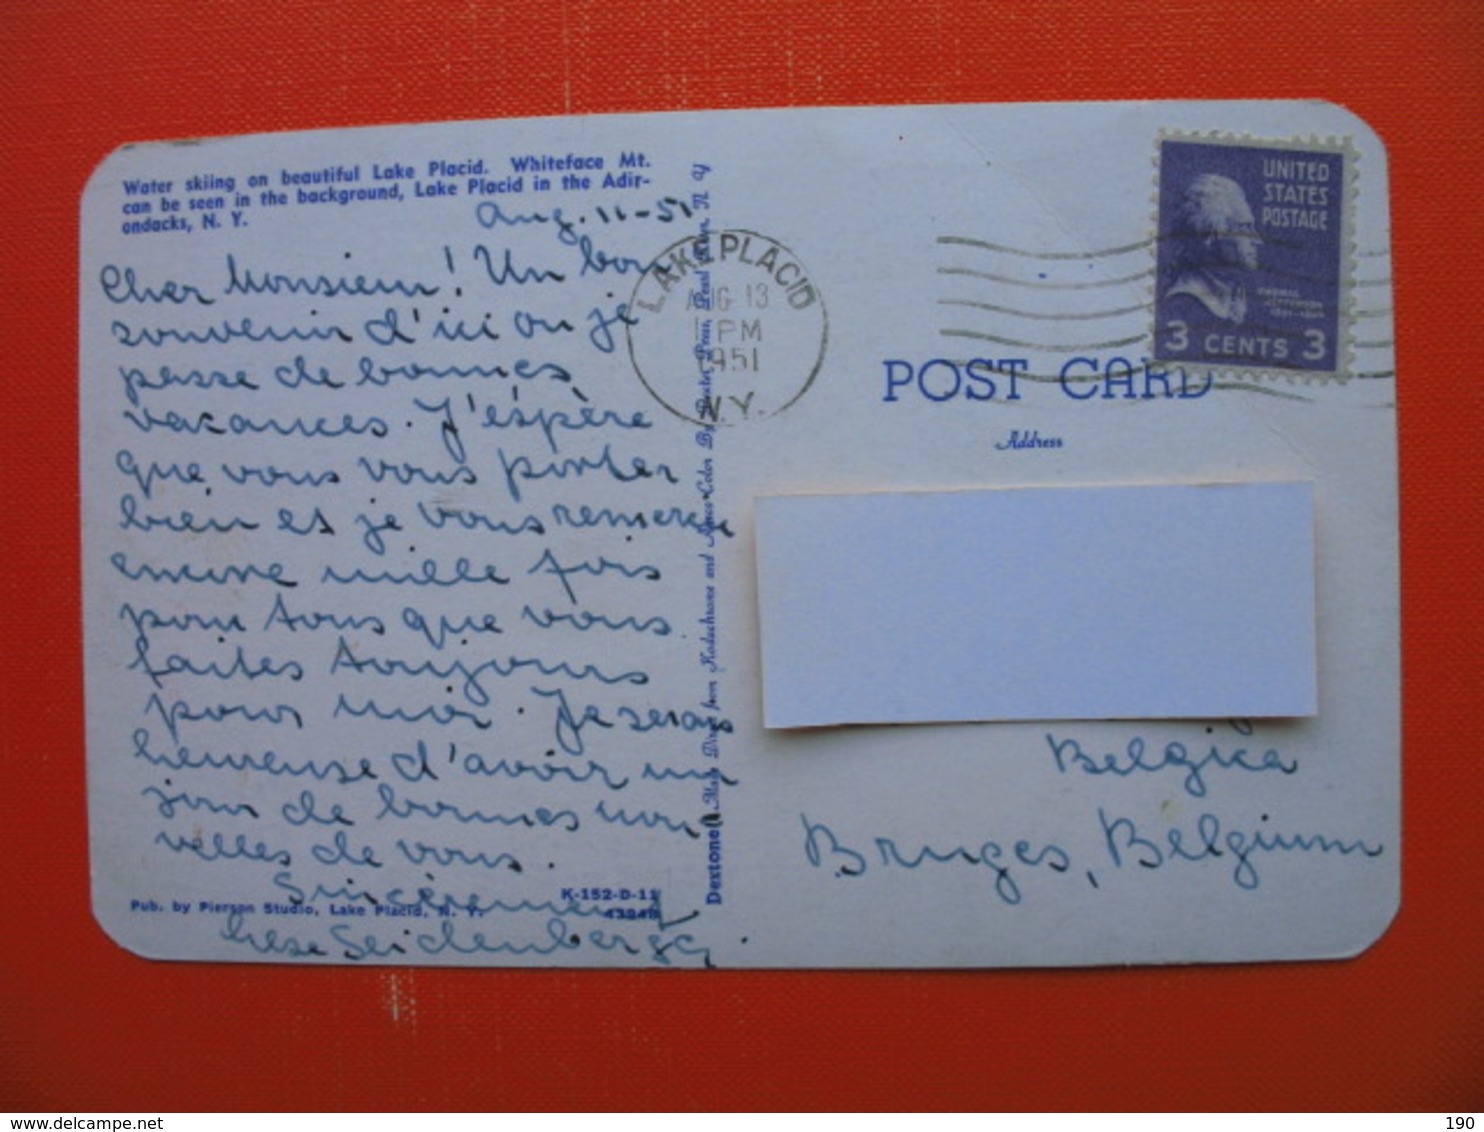 Water skiing on beautiful Lake Placid. Whiteface Mt.
can be seen in the background, Lake Placid in the Adir-
ondacks, N. Y.
Aug. 11-51
Cher Monsieur! Un bon
souvenir d'ici ou je
passe de bonnes
vacances. J'éspère
que vous vous porter
bien et je vous remercie
encore mille fois
pour tous que vous
faites toujours
pour moi. Je serais
heureuse d'avoir un
jour de bonnes nou
velles de vous.
Sincèrement
Seidenberg
Pub. by Pierson Studio, Lake Placid, N. Y.
K-152-D-11
Dextone Made Direct from Kodachrome and Ansco Color By Dexter Press, Pearl River, N. Y.
LAKE PLACID
AUG 13
1 PM
1951
N.Y.
UNITED
STATES
POSTAGE
THOMAS
JEFFERSON
3 CENTS 3
POST CARD
Address
Belgica
Bruges, Belgium
delcampe.net
190